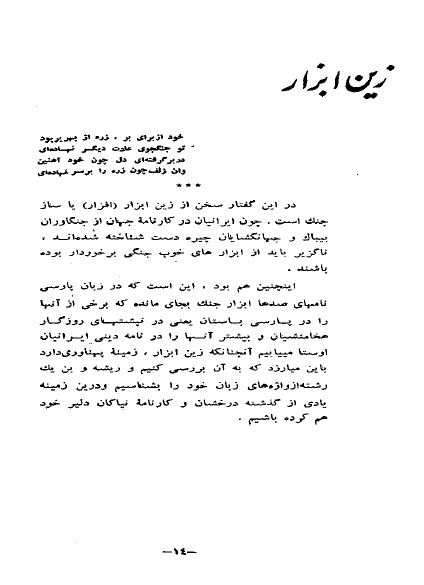 زین ابزار
خود از برای سر ، زره از بهر بر بود
تو جنگجوی عادت دیگر نهاده‌ای
در بر گرفته‌ای دل چون خود آهنین
وان زلف چون زره را بر سر نهاده‌ای
* * *
در این گفتار سخن از زین ابزار (افزار) یا ساز
جنك است . چون ایرانیان در کارنامهٔ جهان از جنگاوران
بیباك و جهانگشایان چیره دست شناخته شده‌اند ،
ناگزیر باید از ابزار های خوب جنگی برخوردار بوده
باشند .
اینچنین هم بود ، این است که در زبان پارسی
نامهای صدها ابزار جنك بجای مانده که برخی از آنها
را در پارسی باستان یعنی در نپشتهای روزگار
هخامنشیان و بیشتر آنها را در نامه دینی ایرانیان
اوستا مییابیم آنچنانکه زین ابزار ، زمینهٔ پهناوری‌دارد
باین میارزد که به آن بررسی کنیم و ریشه و بن یك
رشته‌ازواژه‌های زبان خود را بشناسیم ودرین زمینه
یادی از گذشته درخشان و کارنامهٔ نیاکان دلیر خود
هم کرده باشیم .
—١٤—